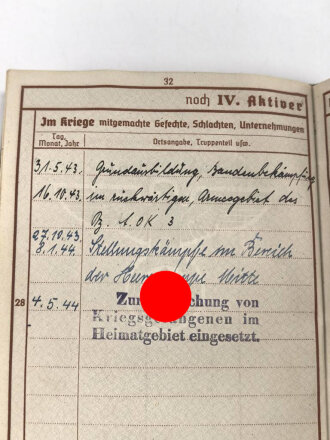 32
noch IV. Aktiver
Im Kriege mitgemachte Gefechte, Schlachten, Unternehmungen
Tag, Monat, Jahr
Ortsangabe, Truppenteil usw.
31.5.43. Grundausbildung, Bandenbekämpfung
16.10.43. im rückwärtigen Armeegebiet des
3
27.10.43 Stellungskämpfe im Bereich
8.1.44. der Mitte
28
4.5.44 Zur chung von
Kriegsgefangenen im
Heimatgebiet eingesetzt.